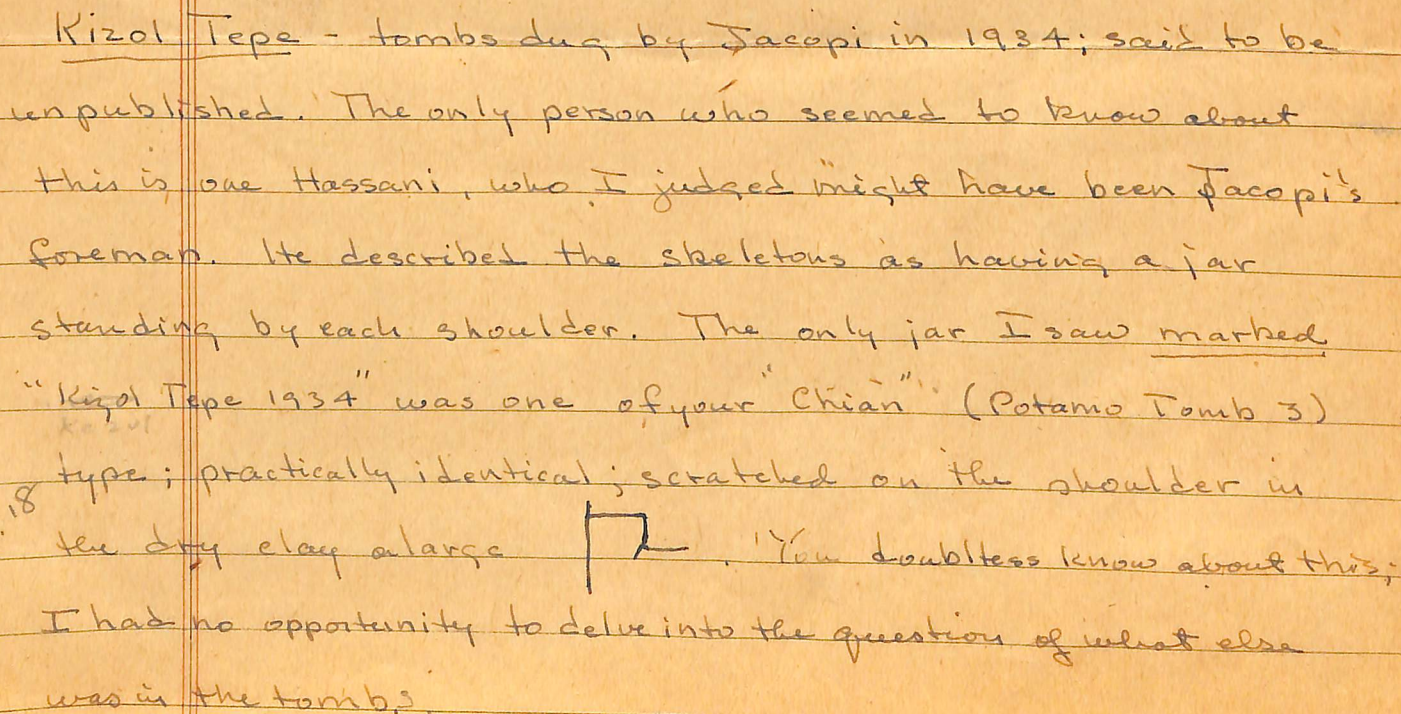 Kizol Tepe - tombs dug by Jacopi in 1934; said to be
unpublished. The only person who seemed to know about
this is one Hassani, who I judged might have been Jacopi's
foreman. He described the skeletons as having a jar
standing by each shoulder. The only jar I saw marked
"Kizol Tepe 1934" was one of your "Chian" (Potamo Tomb 3)
type; practically identical; scratched on the shoulder in
18
the dry clay a large . You doubtless know about this;
I had no opportunity to delve into the question of what else
was in the tombs.